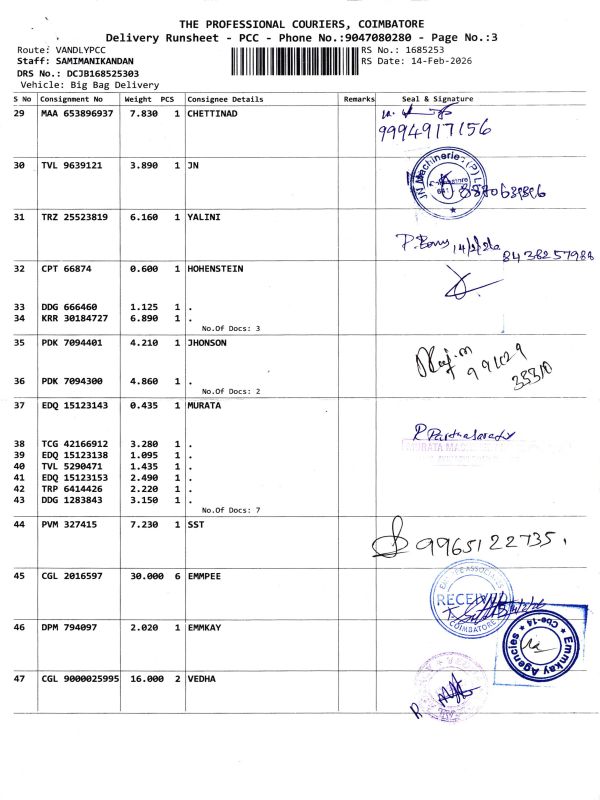 THE PROFESSIONAL COURIERS, COIMBATORE
Delivery Runsheet - PCC - Phone No.:9047080280 - Page No.:3
Route: VANDLYPCC
RS No.: 1685253
Staff: SAMIMANIKANDAN
RS Date: 14-Feb-2026
DRS No.: DCJB168525303
Vehicle: Big Bag Delivery
S No Consignment No Weight PCS Consignee Details Remarks Seal & Signature
29 MAA 653896937 7.830 1 CHETTINAD
9994917156
30 TVL 9639121 3.890 1 JN
JN Machineries (P) L
8880639896
31 TRZ 25523819 6.160 1 YALINI
14/2/26
8438257988
32 CPT 66874 0.600 1 HOHENSTEIN
33 DDG 666460 1.125 1 .
34 KRR 30184727 6.890 1 .
No.Of Docs: 3
35 PDK 7094401 4.210 1 JHONSON
99629
33310
36 PDK 7094300 4.860 1 .
No.Of Docs: 2
37 EDQ 15123143 0.435 1 MURATA
P Parthasarady
MURATA
38 TCG 42166912 3.280 1 .
39 EDQ 15123138 1.095 1 .
40 TVL 5290471 1.435 1 .
41 EDQ 15123153 2.490 1 .
42 TRP 6414426 2.220 1 .
43 DDG 1283843 3.150 1 .
No.Of Docs: 7
44 PVM 327415 7.230 1 SST
9965122735.
45 CGL 2016597 30.000 6 EMMPEE
RECEIVED
COIMBATORE
46 DPM 794097 2.020 1 EMMKAY
Emmkay Agencies
Cbe-14
47 CGL 9000025995 16.000 2 VEDHA